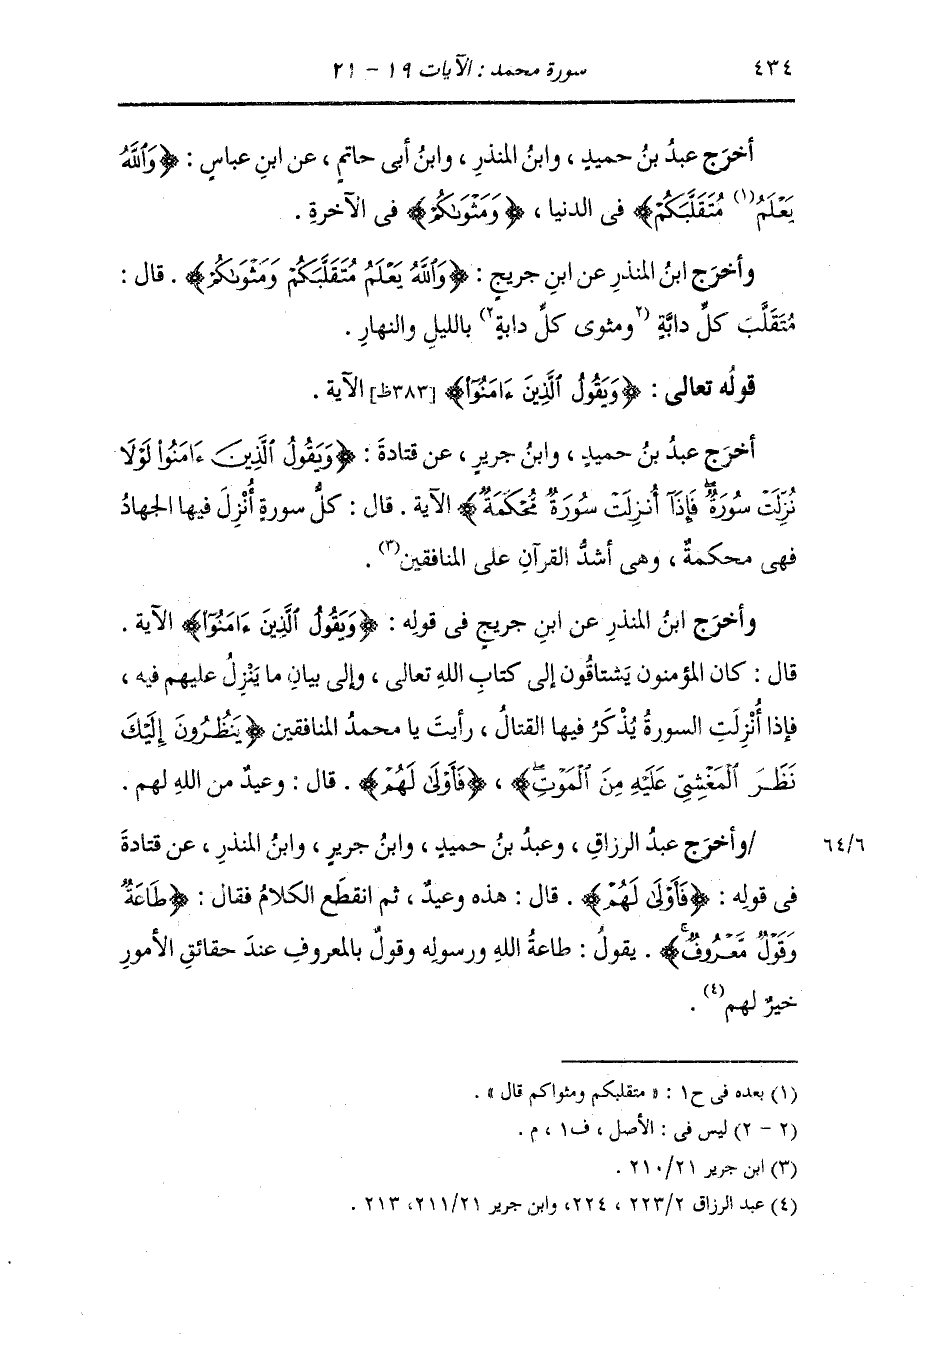 ٤٣٤ سورة محمد : الآيات ١٩ - ٢١
أخرَج عبدُ بنُ حميدٍ ، وابنُ المنذرِ ، وابنُ أبى حاتمٍ ، عن ابنِ عباسٍ : ﴿وَٱللَّهُ
يَعْلَمُ(١) مُتَقَلَّبَكُمْ﴾ فى الدنيا ، ﴿وَمَثْوَىٰكُمْ﴾ فى الآخرةِ .
وأخرَج ابنُ المنذرِ عن ابنِ جريجٍ : ﴿وَٱللَّهُ يَعْلَمُ مُتَقَلَّبَكُمْ وَمَثْوَىٰكُمْ﴾ . قال :
مُتَقَلَّبَ كلِّ دابَّةٍ (٢ومثوى كلِّ دابةٍ٢) بالليلِ والنهارِ .
قولُه تعالى : ﴿وَيَقُولُ ٱلَّذِينَ ءَامَنُوا۟﴾ [٣٨٣ظ] الآية .
أخرَج عبدُ بنُ حميدٍ ، وابنُ جريرٍ ، عن قتادةَ : ﴿وَيَقُولُ ٱلَّذِينَ ءَامَنُوا۟ لَوْلَا
نُزِّلَتْ سُورَةٌۖ فَإِذَآ أُنزِلَتْ سُورَةٌ مُّحْكَمَةٌ﴾ الآية . قال : كلُّ سورةٍ أُنْزِلَ فيها الجهادُ
فهى محكمةٌ ، وهى أشدُّ القرآنِ على المنافقين(٣) .
وأخرَج ابنُ المنذرِ عن ابنِ جريجٍ فى قولِه : ﴿وَيَقُولُ ٱلَّذِينَ ءَامَنُوا۟﴾ الآية .
قال : كان المؤمنون يَشتاقُون إلى كتابِ اللهِ تعالى ، وإلى بيانِ ما يَنْزِلُ عليهم فيه ،
فإذا أُنْزِلَتِ السورةُ يُذْكَرُ فيها القتالُ ، رأيتَ يا محمدُ المنافقين ﴿يَنظُرُونَ إِلَيْكَ
نَظَرَ ٱلْمَغْشِىِّ عَلَيْهِ مِنَ ٱلْمَوْتِۖ﴾ ، ﴿فَأَوْلَىٰ لَهُمْ﴾ . قال : وعيدٌ من اللهِ لهم .
٦٤/٦ /وأخرَج عبدُ الرزاقِ ، وعبدُ بنُ حميدٍ ، وابنُ جريرٍ ، وابنُ المنذرِ ، عن قتادةَ
فى قولِه : ﴿فَأَوْلَىٰ لَهُمْ﴾ . قال : هذه وعيدٌ ، ثم انقطَع الكلامُ فقال : ﴿طَاعَةٌ
وَقَوْلٌ مَّعْرُوفٌۚ﴾ . يقولُ : طاعةُ اللهِ ورسولِه وقولٌ بالمعروفِ عندَ حقائقِ الأمورِ
خيرٌ لهم(٤) .
(١) بعده فى ح١ : « متقلبكم ومثواكم قال » .
(٢ - ٢) ليس فى : الأصل ، ف١ ، م .
(٣) ابن جرير ٢١٠/٢١ .
(٤) عبد الرزاق ٢٢٣/٢ ، ٢٢٤، وابن جرير ٢١١/٢١، ٢١٣ .